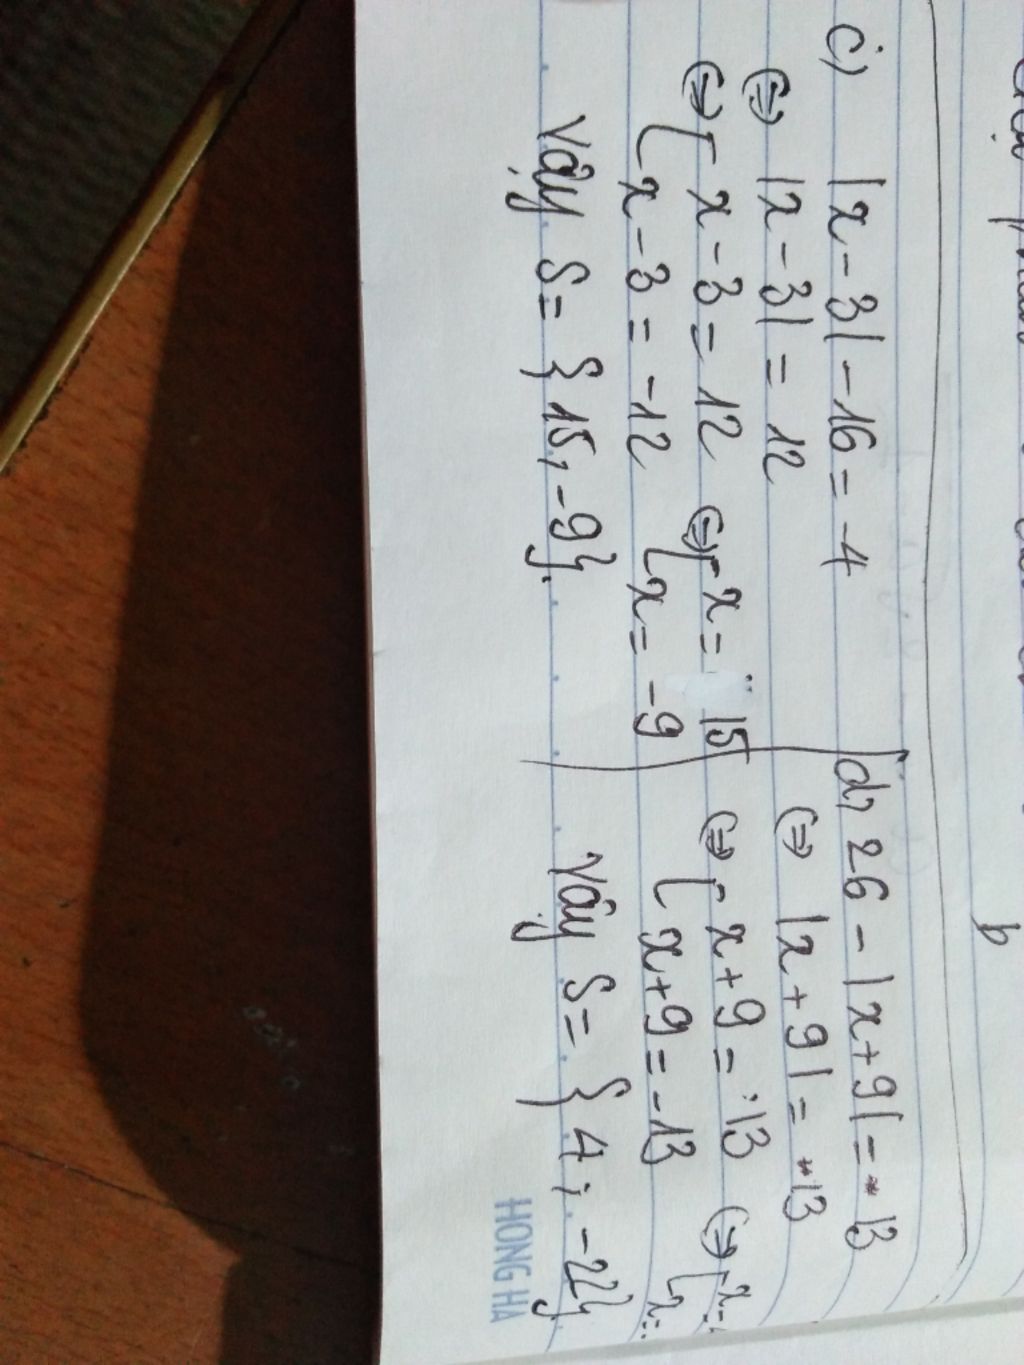 c) |x-3|-16 = -4
⇔ |x-3| = 12
⇔ [ x-3 = 12 ⇔ [ x = 15
[ x-3 = -12 [ x = -9
Vậy S = {15; -9}.
d, 26 - |x+9| = -13
⇔ |x+9| = 13
⇔ [ x+9 = 13 ⇔ [ x =
[ x+9 = -13 [ x =
Vậy S = {4; -22}.
HONG HA
b